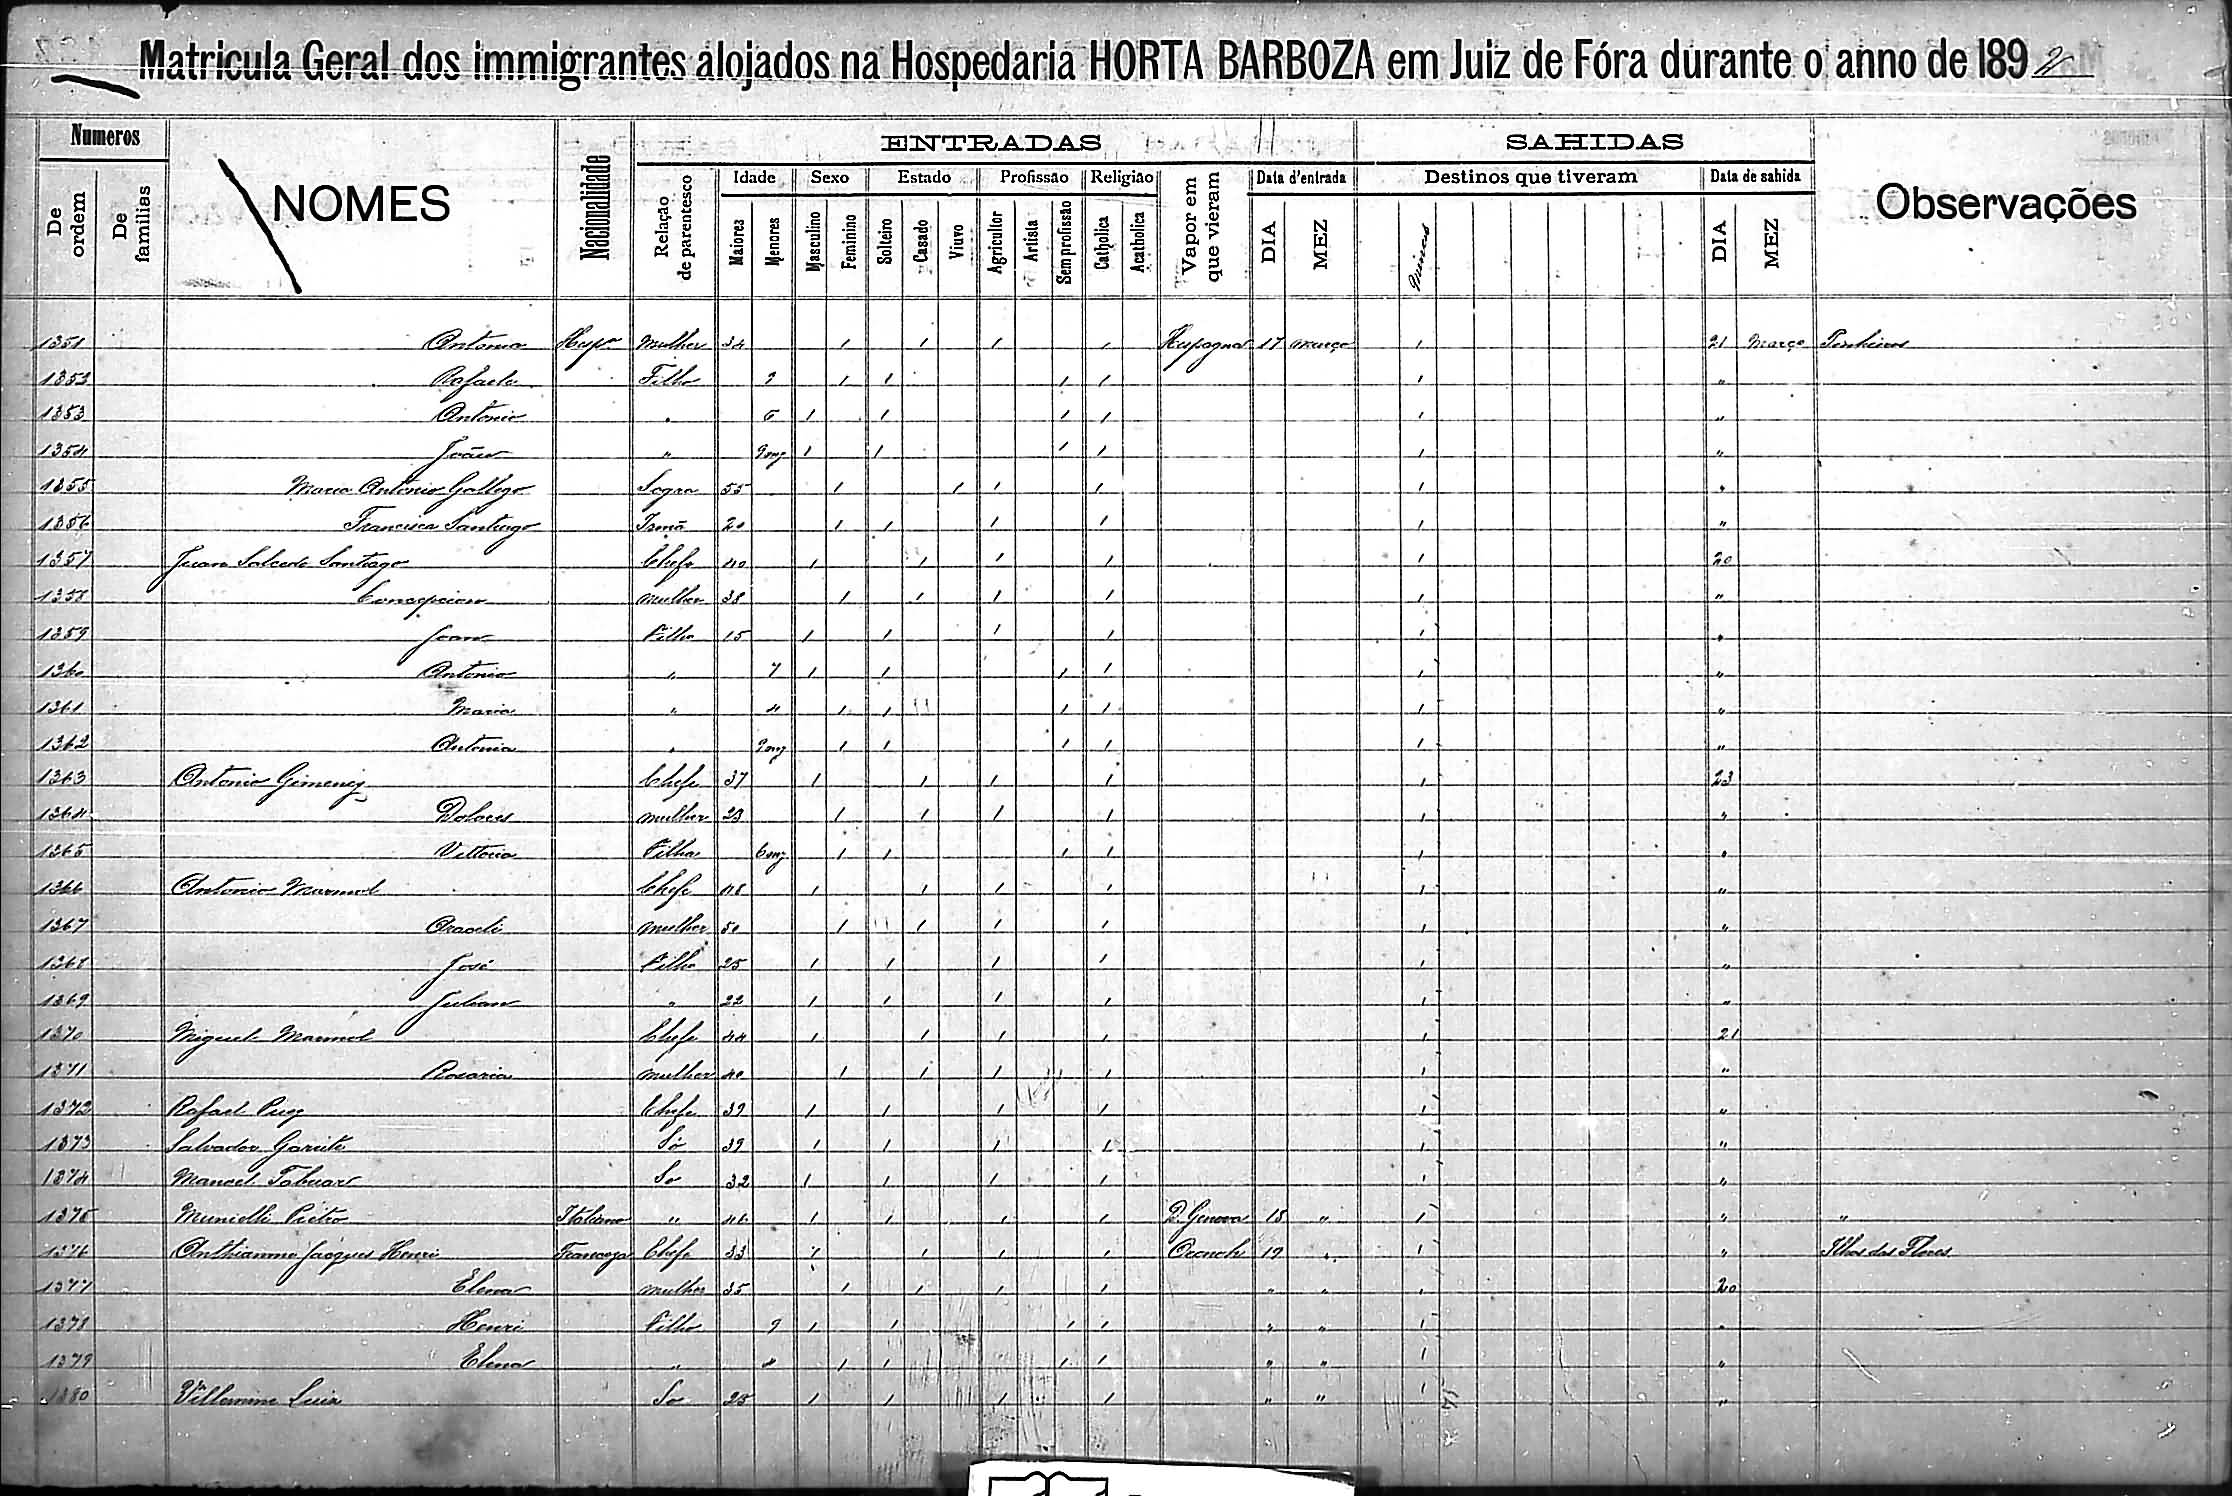 Matricula Geral dos immigrantes alojados na Hospedaria HORTA BARBOZA em Juiz de Fóra durante o anno de 1892
Numeros NOMES Nacionalidade ENTRADAS SAHIDAS Observações
De ordem De familias Relação de parentesco Idade Sexo Estado Profissão Religião Vapor em que vieram Data d'entrada Destinos que tiveram Data de sahida
Maiores Menores Masculino Feminino Solteiro Casado Viuvo Agricultor Artista Sem profissão Catholica Acatholica DIA MEZ Minas DIA MEZ
1351 Antonia Hespª Mulher 34 1 1 1 1 Hespagna 17 Março 1 21 Março
1353 Rafaela Filho 9 1 1 1 1 1 "
1353 Antonio " 6 1 1 1 1 1 "
1354 João " 9 mz 1 1 1 1 1 "
1355 Maria Antonio Gallego Sogra 55 1 1 1 1 1 "
1356 Francisca Santiago Irmã 20 1 1 1 1 1 "
1357 Juan Salcedo Santiago Chefe 40 1 1 1 1 1 20
1358 Concepcion Mulher 38 1 1 1 1 1 "
1359 Juan Filho 15 1 1 1 1 1 "
1360 Antonio " 7 1 1 1 1 1 "
1361 Maria " 4 1 1 1 1 1 "
1362 Antonia " 9 mz 1 1 1 1 1 "
1363 Antonio Gimenez Chefe 37 1 1 1 1 1 23
1364 Dolores Mulher 23 1 1 1 1 1 "
1365 Vittoria Filha 6 mz 1 1 1 1 1 "
1366 Antonio Marmol Chefe 48 1 1 1 1 1 "
1367 Araceli Mulher 50 1 1 1 1 1 "
1368 José Filho 25 1 1 1 1 1 "
1369 Julian " 22 1 1 1 1 1 "
1370 Miguel Marmol Chefe 44 1 1 1 1 1 21
1371 Rosaria Mulher 40 1 1 1 1 1 "
1372 Rafael Puez Chefe 39 1 1 1 1 1 "
1373 Salvador Garrite Só 39 1 1 1 1 1 "
1374 Manoel So 32 1 1 1 1 1 "
1375 Pietro Italiano " 46 1 1 1 1 D. Genova 18 " 1 " "
1376 Jacques Henri Franceza Chefe 33 1 1 1 1 19 " 1 " Ilhas das Flores
1377 Elena Mulher 35 1 1 1 1 " " 1 20
1378 Henri Filho 9 1 1 1 1 " " 1 "
1379 Elena " 4 1 1 1 1 " " 1 "
1380 Luiz So 25 1 1 1 1 " " 1 "